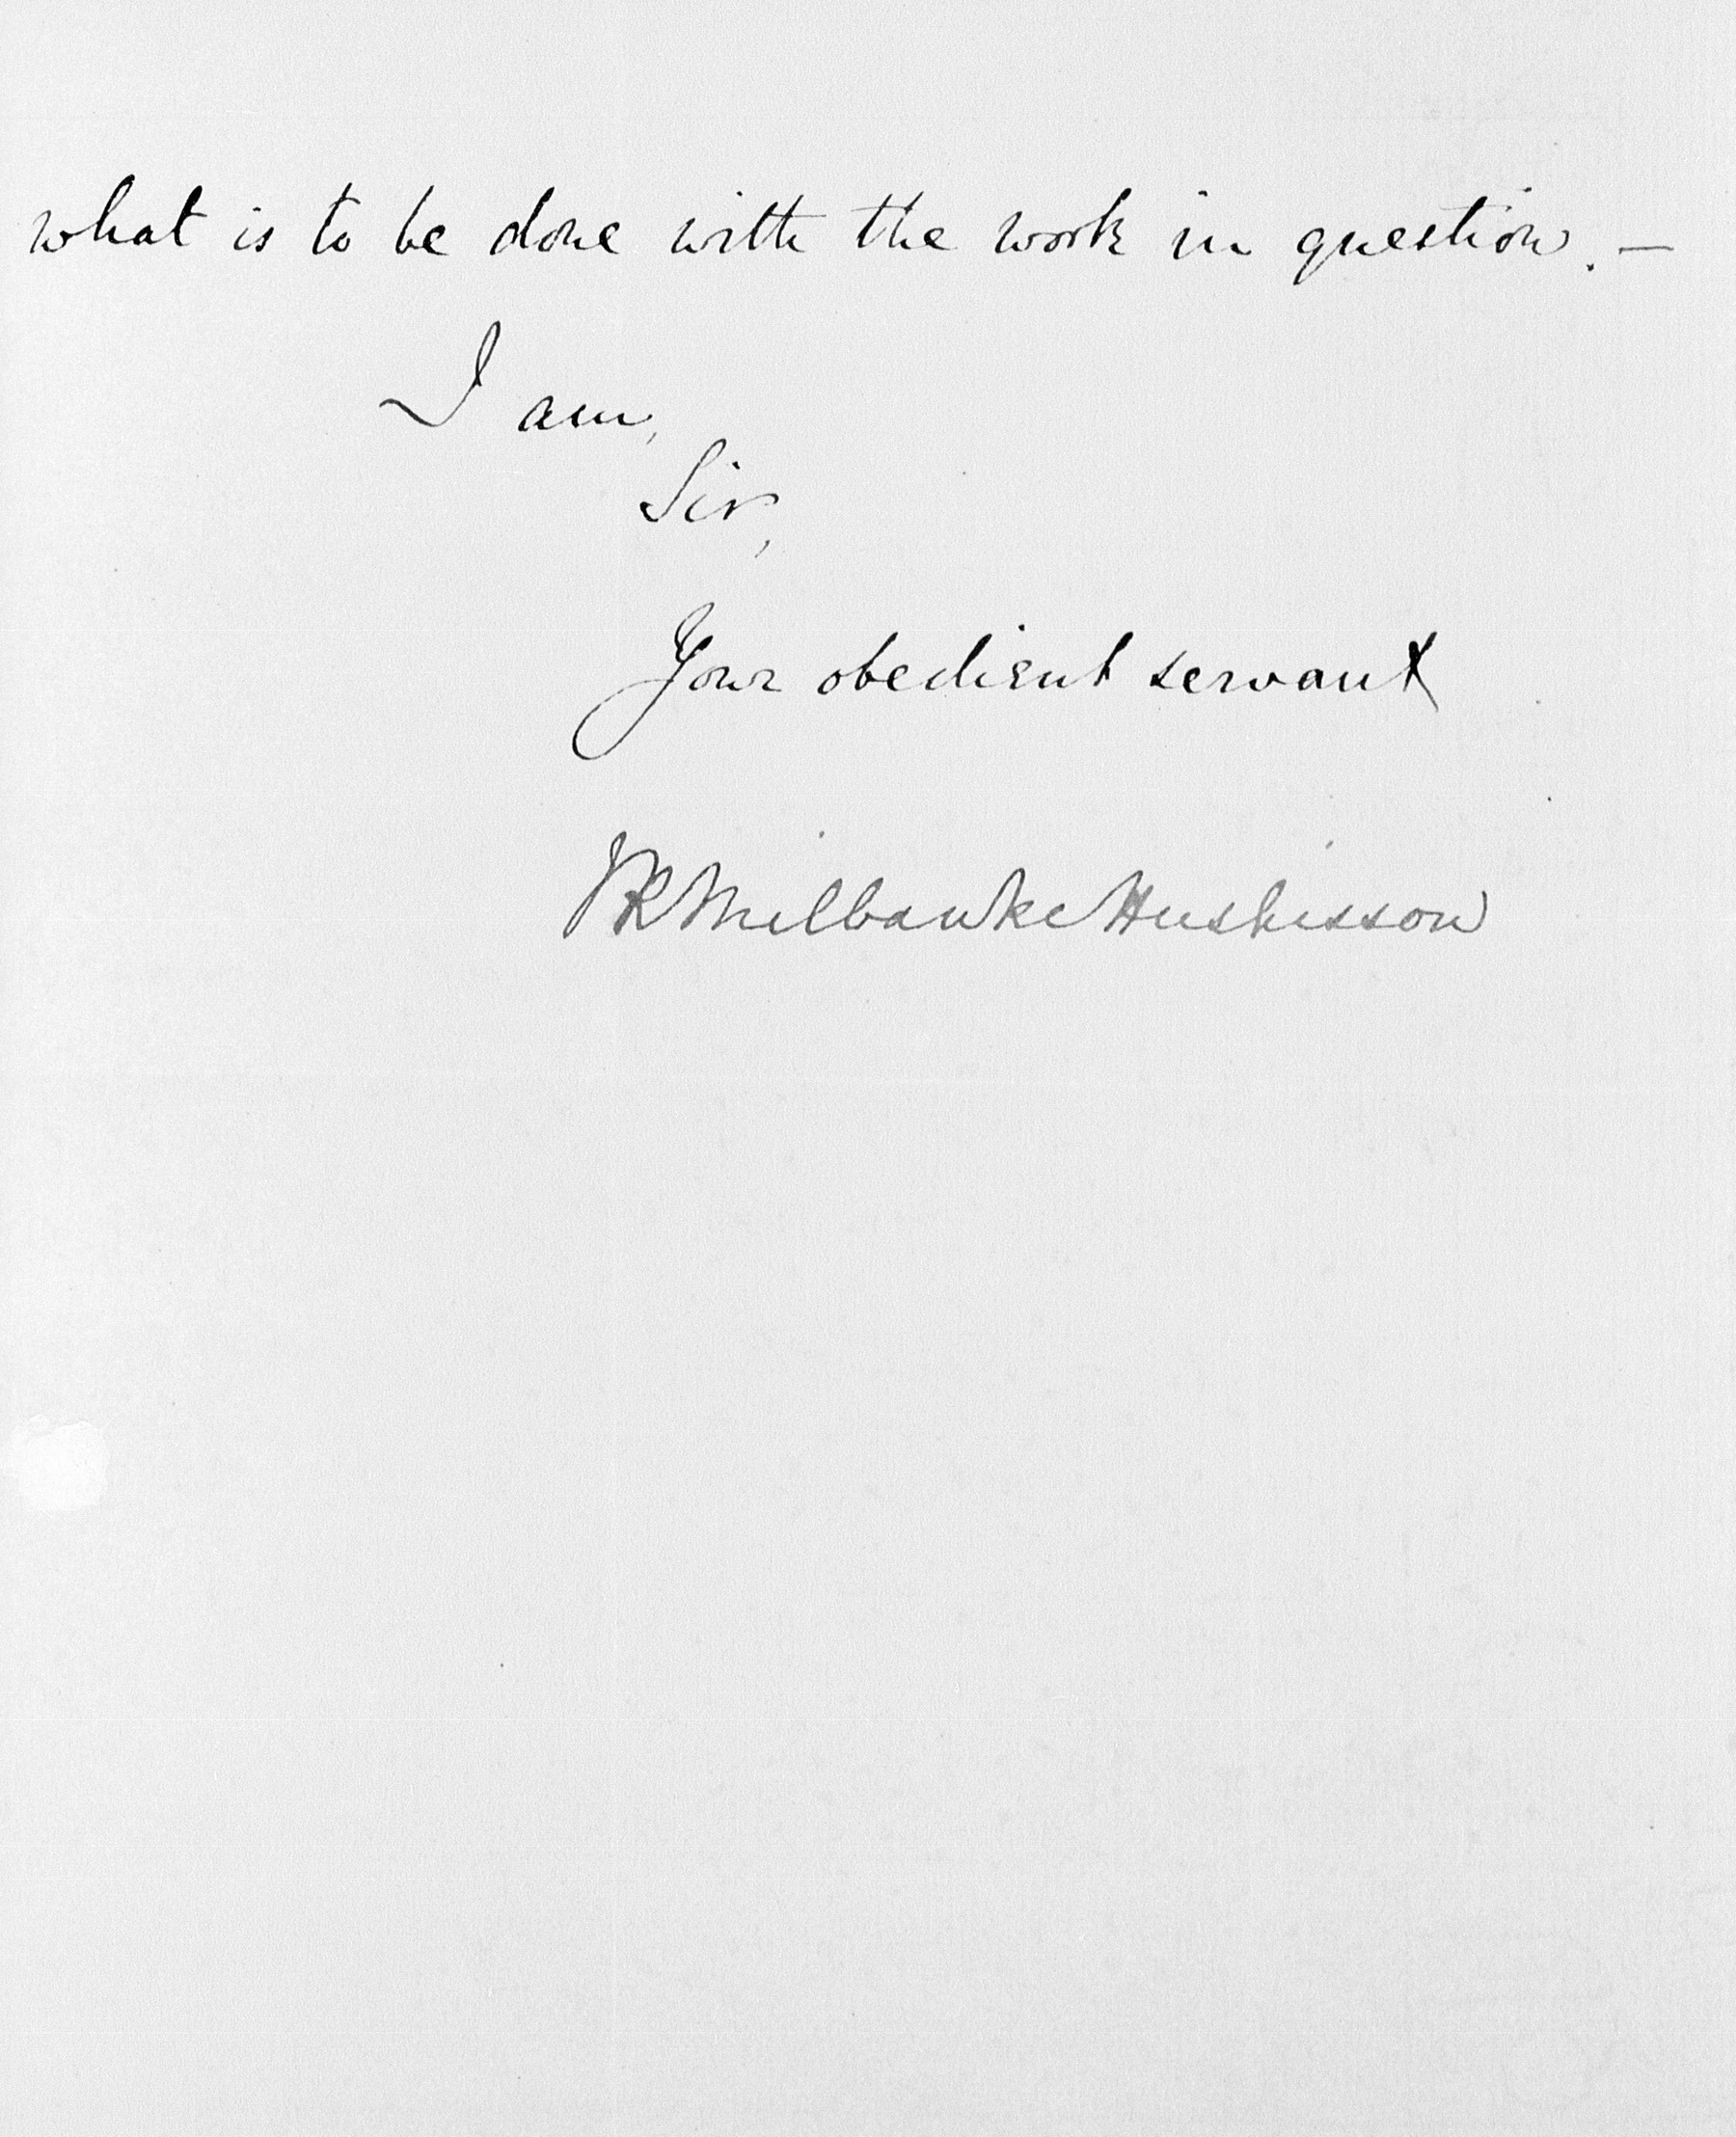 what is to be done with the work in question. —
I am,
Sir,
Your obedient servant
JR Milbanke Huskisson